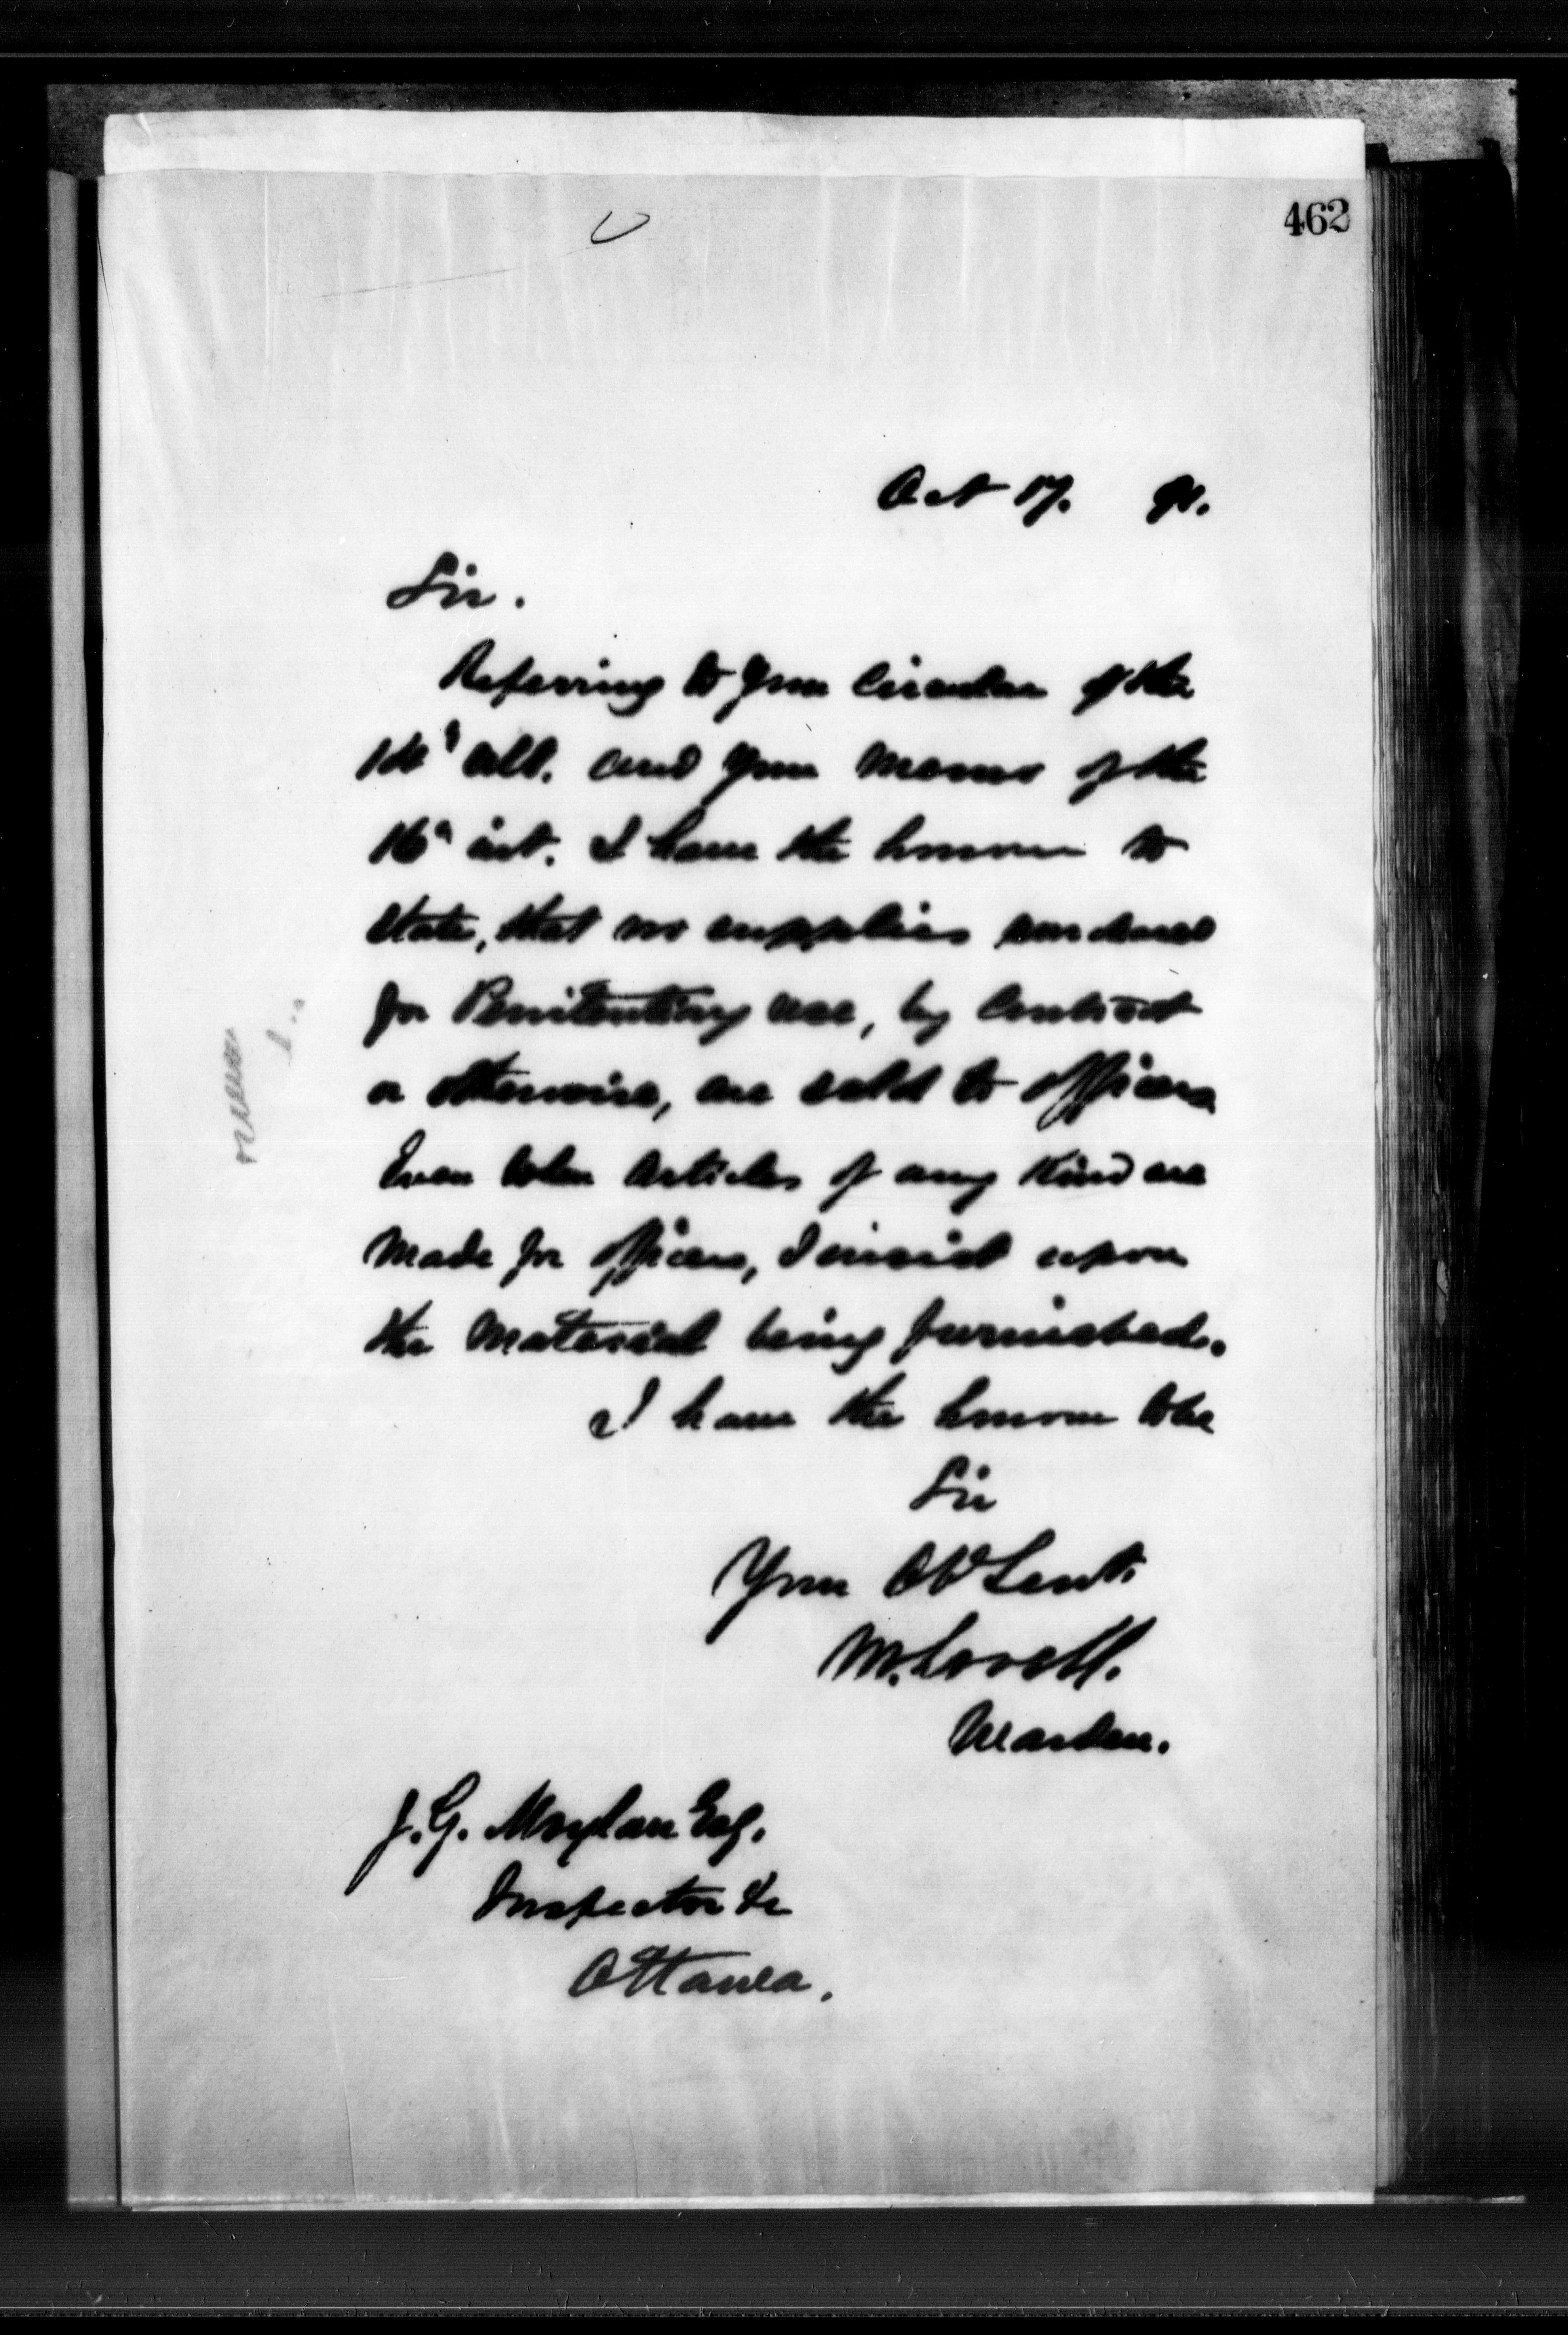 462
Oct 17. 91.
Sir.
Referring to your Circular of the
14" ult. and your memo of the
16" inst. I have the honour to
state, that no supplies purchased
for Penitentiary use, by Contract
or otherwise, are sold to officers
Even when articles of any Kind are
Made for officers, I insist upon
the Material being furnished.
I have the honour to be
Sir
Your Obt Servt.
M. Lavell.
Warden.
J. G. Moylan Esq.
Inspector &c
Ottawa.